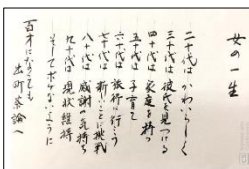 女の一生
二十代は かわいらしく
三十代は 彼氏を見つける
四十代は 家庭を持つ
五十代は 子育て
六十代は 旅行に行こう
七十代は 新しいことに挑戦
八十代は 感謝の気持ち
九十代は 現状維持
そしてボケないように
百才になっても